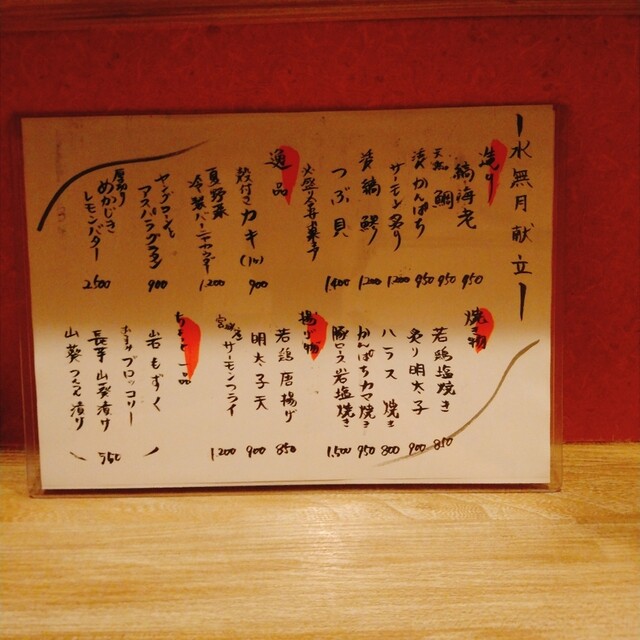 水無月献立
造り
縞海老 950
天然 鯛 950
淡 かんぱち 950
サーモン炙り 1,200
淡 縞鯵 1,200
つぶ貝 1,400
逸品
殻付きカキ(1ヶ) 900
夏野菜
冷製バーニャカウダー 1,200
ヤングコーンと
アスパラグラタン 900
厚切り
めかじき
レモンバター 2,500
焼き物
若鶏塩焼き 850
炙り明太子 900
ハラス焼き 800
かんぱちカマ焼き 950
豚ロース岩塩焼き 1,500
揚げ物
若鶏唐揚げ 850
明太子天 900
サーモンフライ 1,200
ちょっと一品
岩もずく
ブロッコリー
長芋山葵漬け
山葵つくん漬け
550